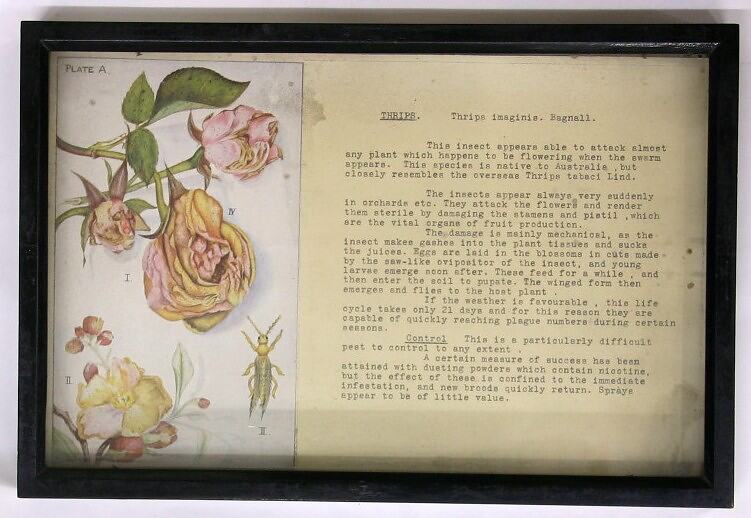 PLATE A.
IV
I.
II.
III.
THRIPS. Thrips imaginis. Bagnall.
This insect appears able to attack almost
any plant which happens to be flowering when the swarm
appears. This species is native to Australia ,but
closely resembles the overseas Thrips tabaci Lind.
The insects appear always very suddenly
in orchards etc. They attack the flowers and render
them sterile by damaging the stamens and pistil ,which
are the vital organs of fruit production.
The damage is mainly mechanical, as the
insect makes gashes into the plant tissues and sucks
the juices. Eggs are laid in the blossoms in cuts made
by the saw-like ovipositor of the insect, and young
larvae emerge soon after. These feed for a while , and
then enter the soil to pupate. The winged form then
emerges and flies to the host plant .
If the weather is favourable , this life
cycle takes only 21 days and for this reason they are
capable of quickly reaching plague numbers during certain
seasons.
Control This is a particularly difficult
pest to control to any extent .
A certain measure of success has been
attained with dusting powders which contain nicotine,
but the effect of these is confined to the immediate
infestation, and new broods quickly return. Sprays
appear to be of little value.